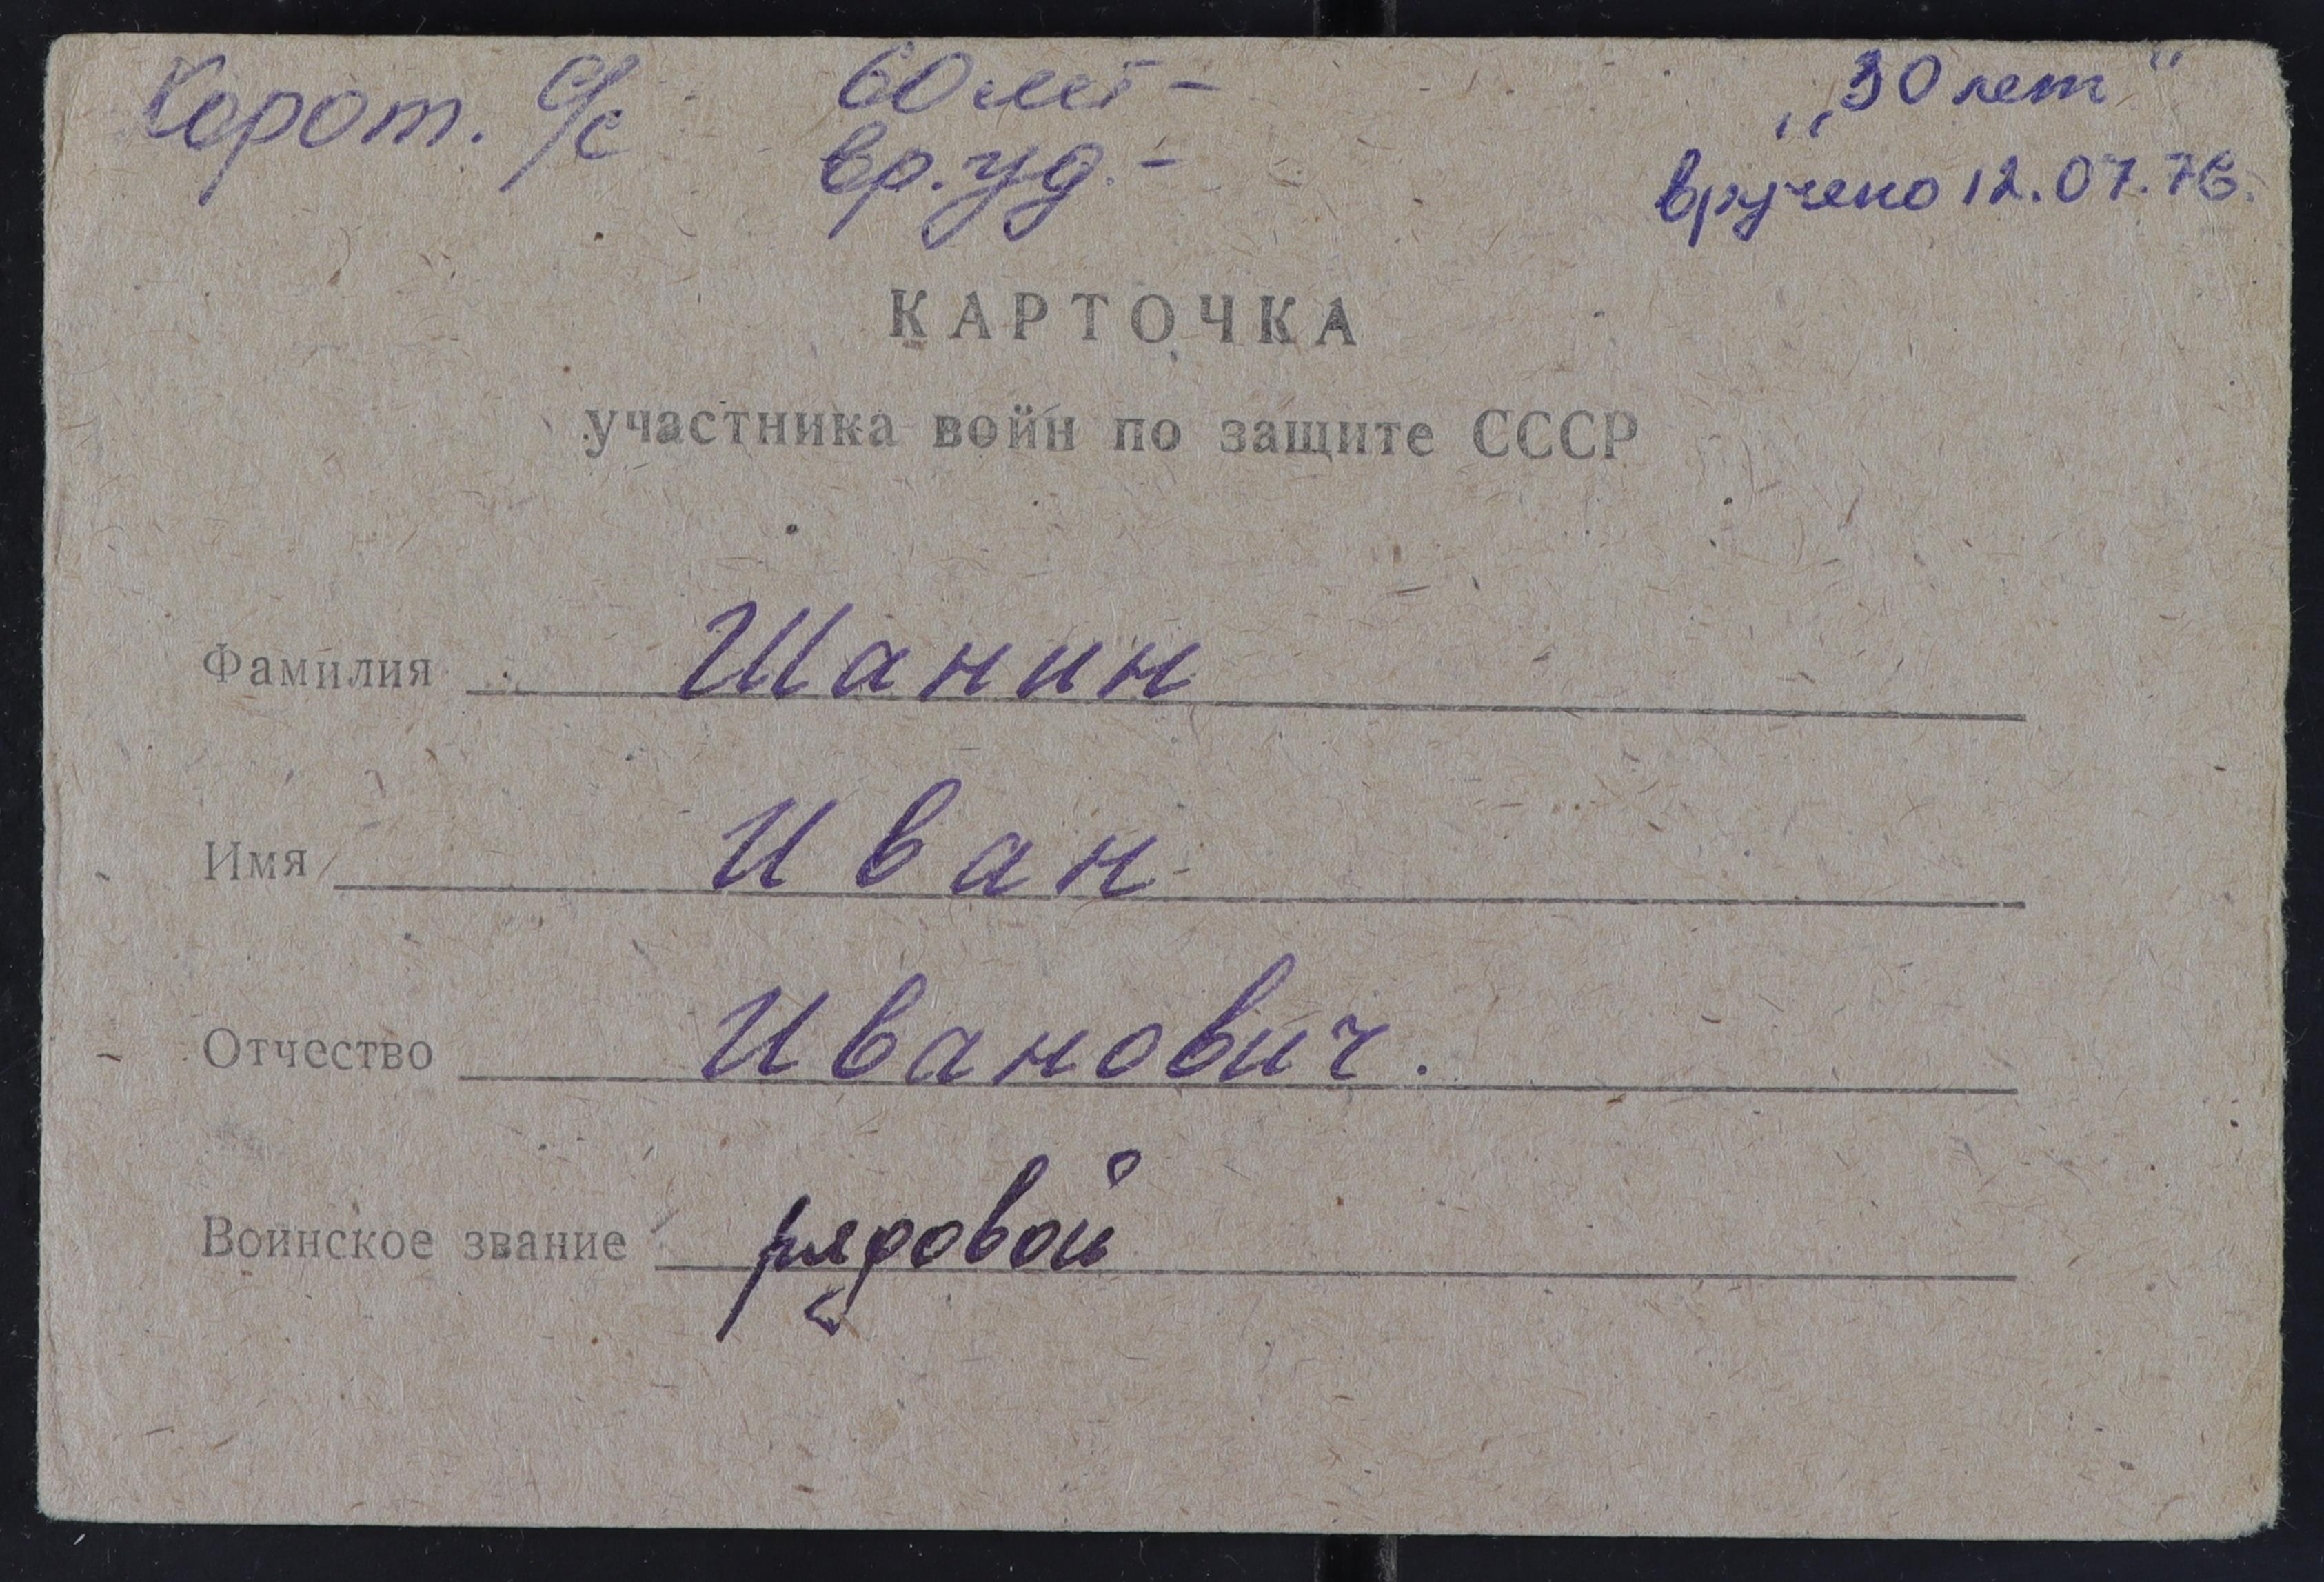 Корот. с/с 60 лет - „30 лет"
вр. уд. - вручено 12.07.76.
КАРТОЧКА
участника войн по защите СССР
Фамилия Шанин
Имя Иван
Отчество Иванович.
Воинское звание рядовой